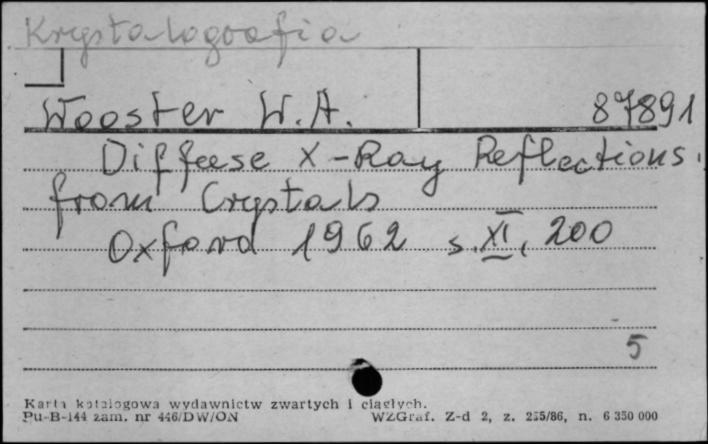 Krystalografia
Wooster W. A. 87891
Diffeese X-Ray Reflections.
from Crystals
Oxford 1962 s. XI, 200
5
Karta katalogowa wydawnictw zwartych i ciągłych.
Pu-B-144 zam. nr 446/DW/ON WZGraf. Z-d 2, z. 255/86, n. 6 350 000